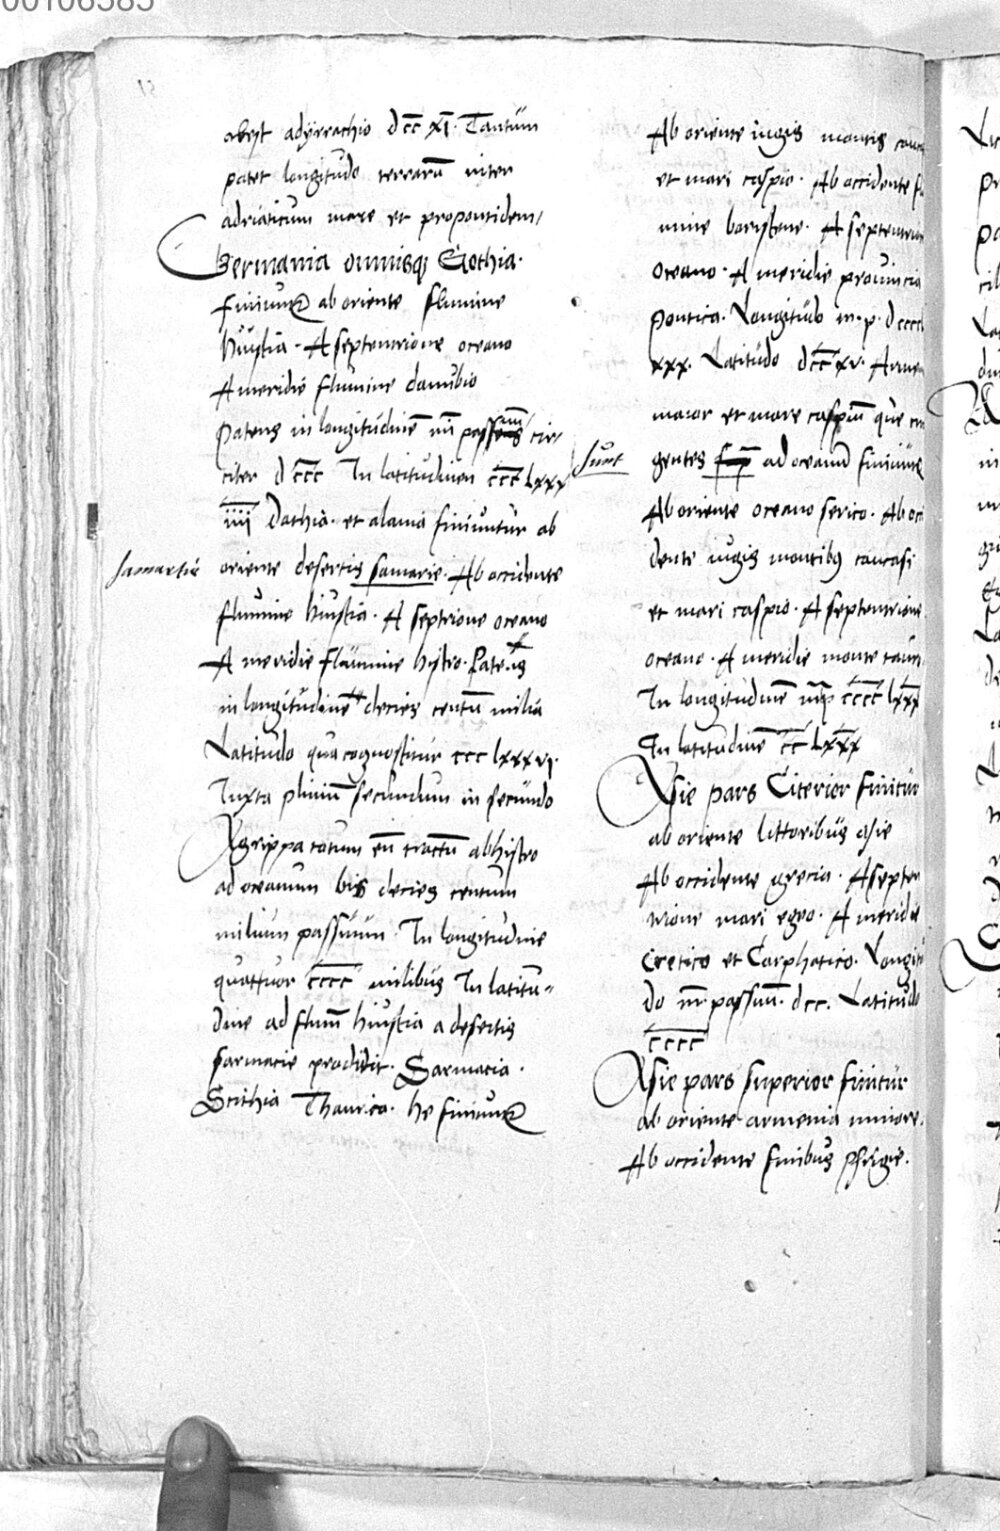 00106585
abest adyrrachio dcc xi. Tantum
patet longitudo terrarū inter
adriaticum mare et propontidem/
Germania omnisq Gothia.
Finiunt ab oriente flumine
huistia. A septemtrione oceano
A meridie flumine danubio
Patens in longitudinē passuum cir/
citer d ccc In latitudinem ccc lxxx
iiii Dathia. et alania finiuntur ab
sarmartie
oriente desertis samarie. Ab occidente
flumine hiustia. A septrione oceano
A meridie flumine histro. Patens
in longitudinē decies centū milia
Latitudo qua cognoscitur ccc lxxxvi.
Iuxta pliniū secundum in secundo
Agrippa totum eū tractū abhistro
ad oceanum bis decies centum
milium passuum. In longitudine
quattuor cccc milibus In latitu-
dine ad flumē hiustia a desertis
sarmacie prodidit. Sarmacia.
Scithia Thaurica. he finiunt
Ab oriente iugis montis
et mari caspio. Ab occidente
mine boristene. A septemtrion
oceano. A meridie prouincia
Pontica. Longitudo m. p. dcccc
xxx. Latitudo dcc xv. Armen
maior et mare caspiū que
sunt
gentes ad oceanū finiunt
Ab oriente oceano serico. Ab occi
dente iugis montibus caucasi
et mari caspio. A septemtrione
oceano. A meridie monte tauri
In longitudinē cccc lxxx
In latitudinē cc lxxx
Asie pars Citerior finitur
ab oriente littoribus asie
Ab occidente grecia. A septen
trione mari egeo. A meridie
Cretico et Carphatico. Longitu
do m. passuū. dcc. Latitudo
cccc
Asie pars superior finitur
ab oriente armenia minore.
Ab occidente finibus phrigie.